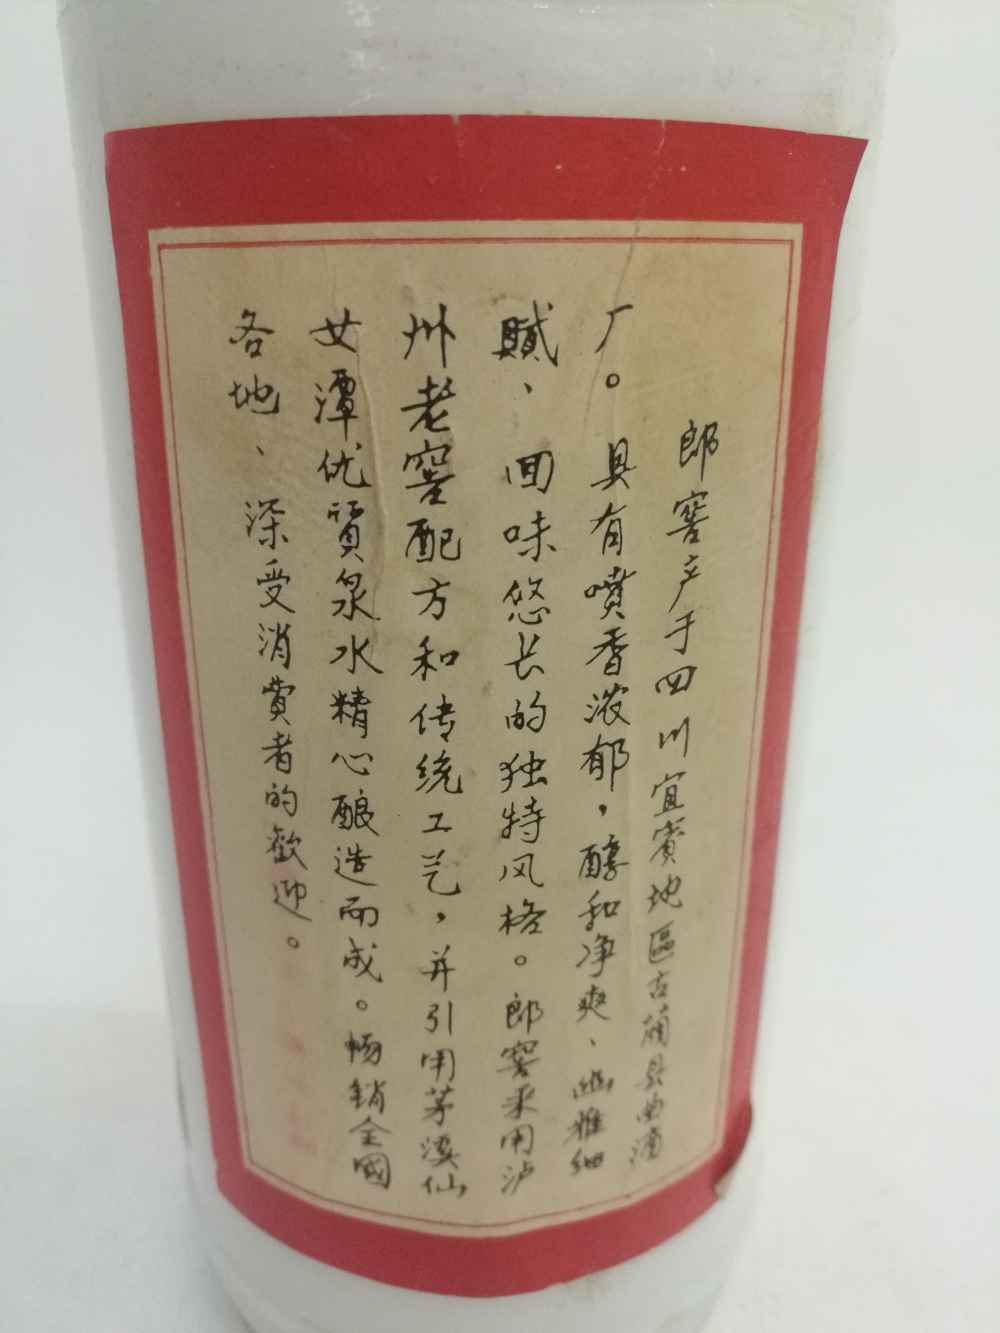 郎窖产于四川宜賓地區古藺县曲酒
厂。具有噴香浓郁，醇和净爽、幽雅细
膩、回味悠长的独特风格。郎窖采用泸
州老窖配方和传统工艺，并引用茅溪仙
女潭优質泉水精心酿造而成。畅銷全國
各地、深受消費者的歡迎。